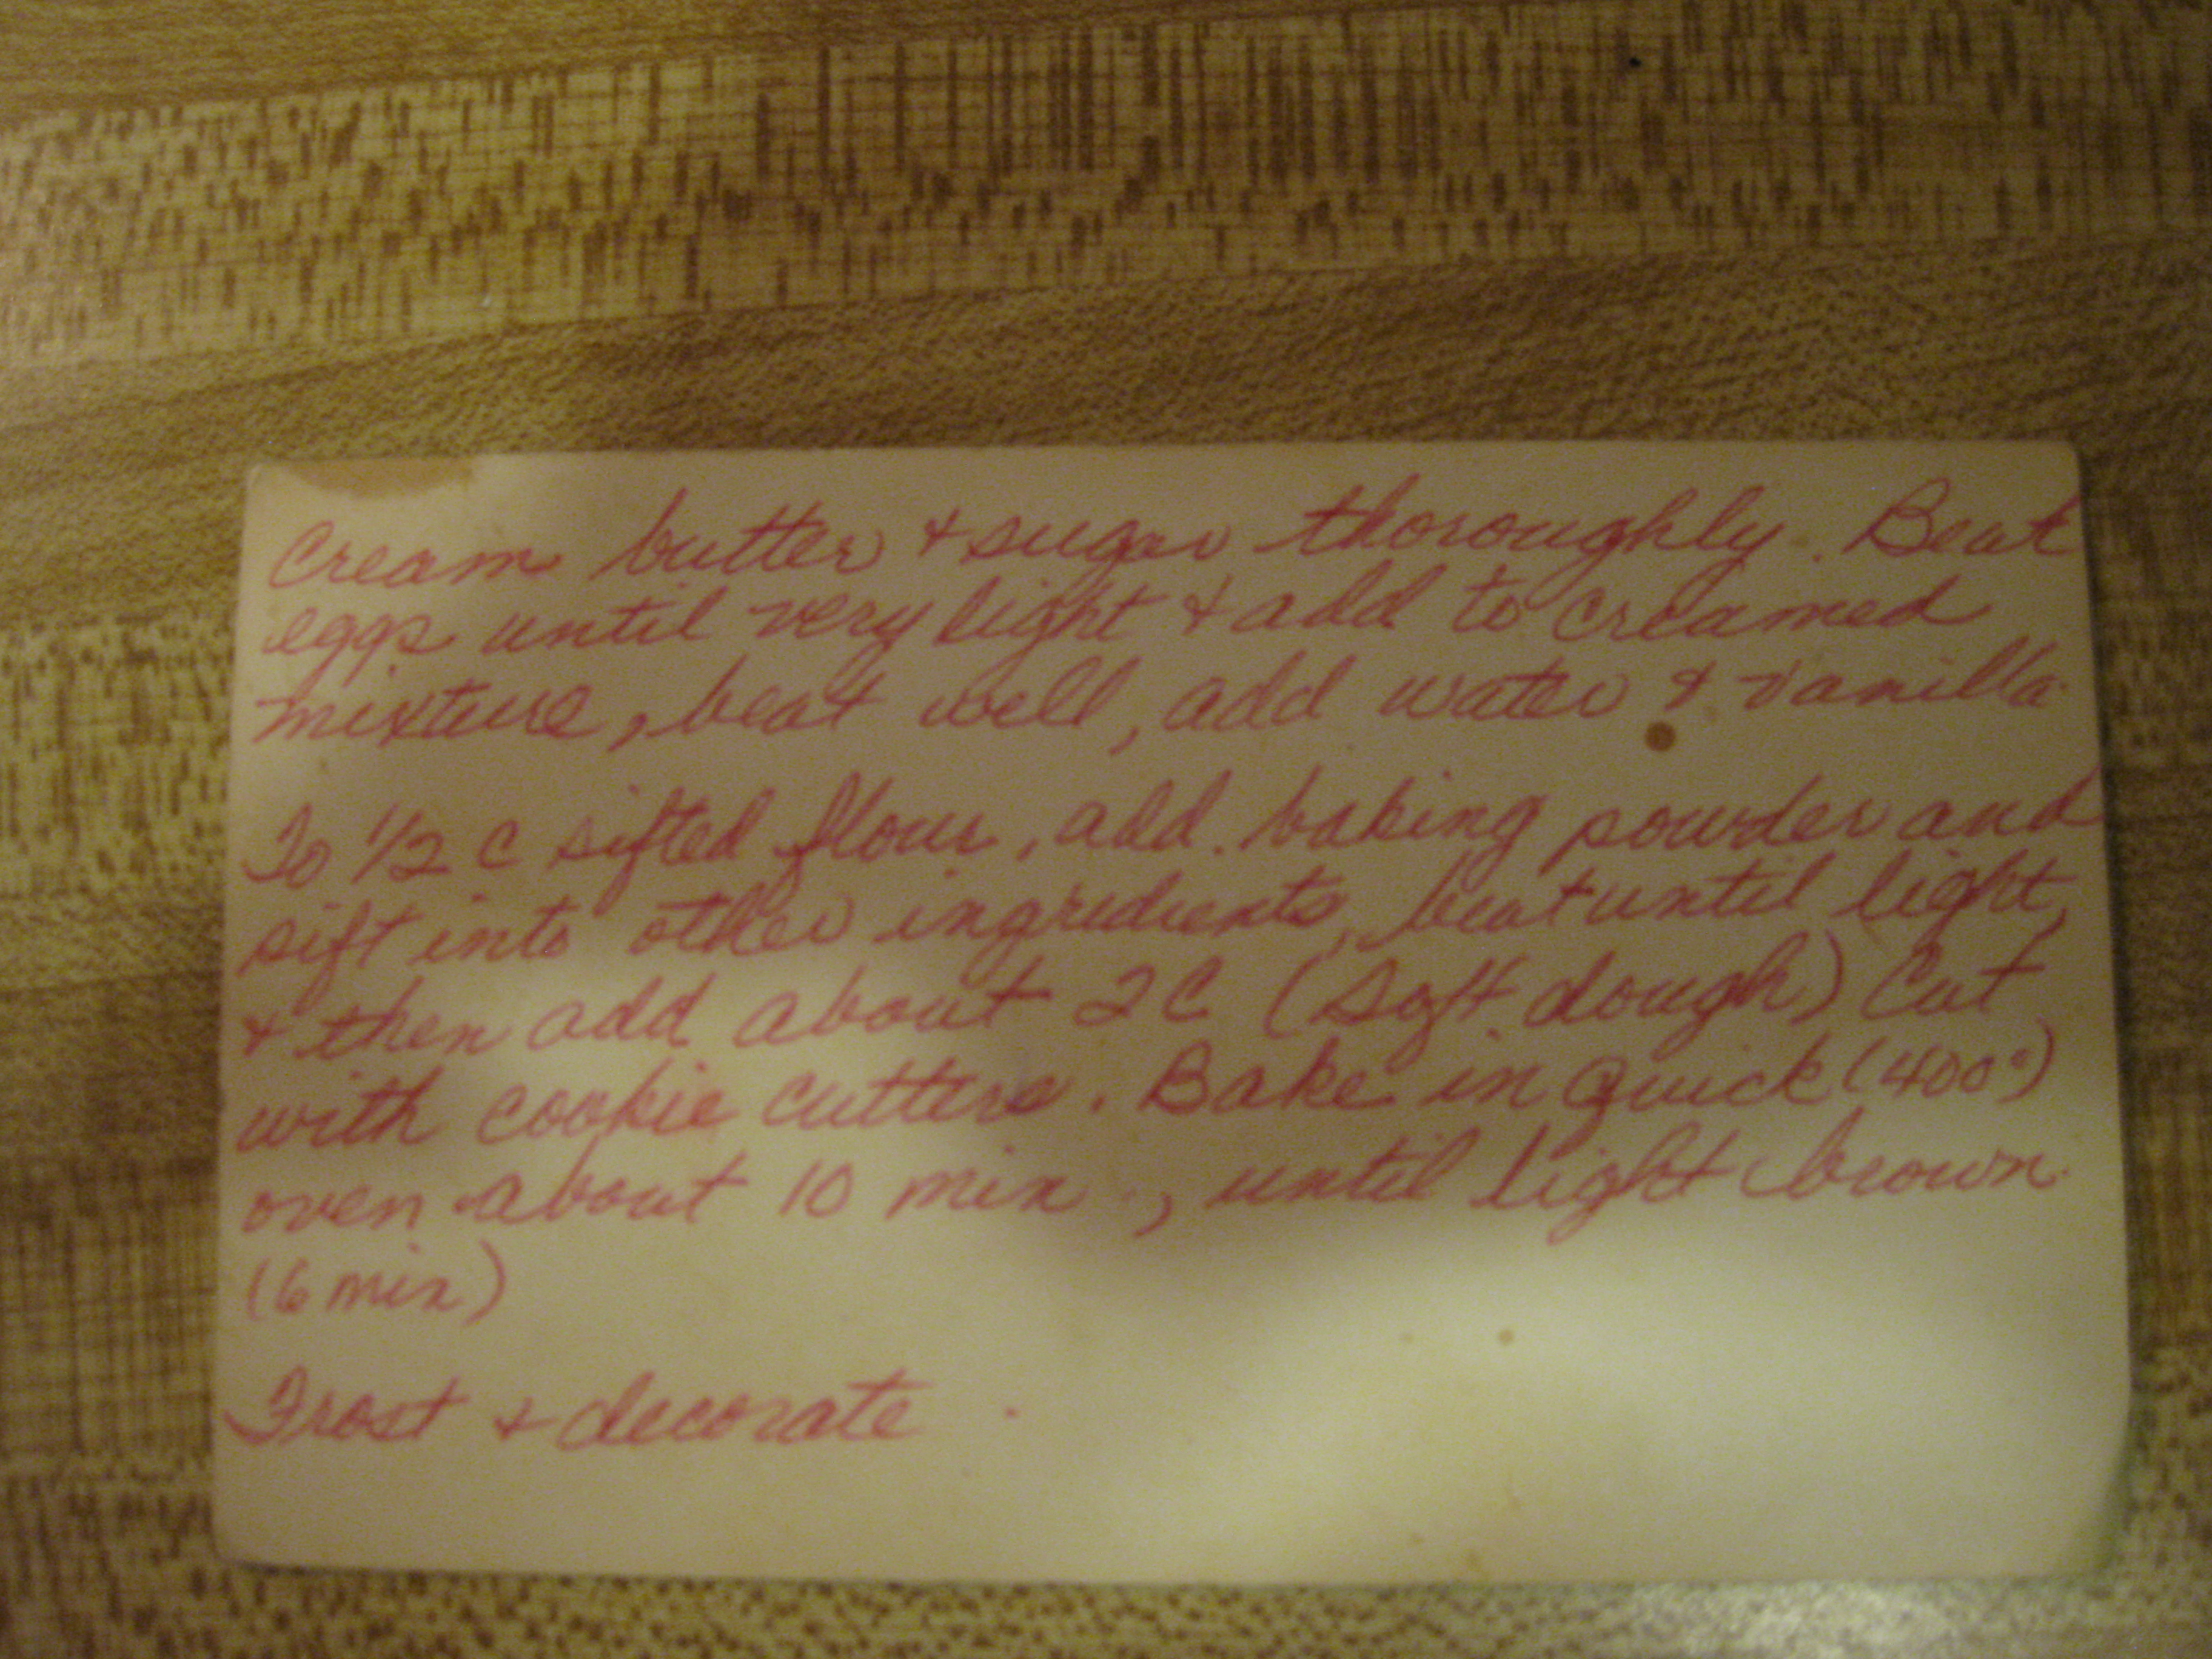 Cream butter + sugar thoroughly. Beat
eggs until very light + add to creamed
mixture, beat well, add water & vanilla
To 1/2 c sifted flour, add baking powder and
sift into other ingredients, beat until light,
+ then add about 2 C (soft dough) Cut
with cookie cutters. Bake in Quick (400°)
oven about 10 min., until light brown.
(6 min)
Frost + decorate.